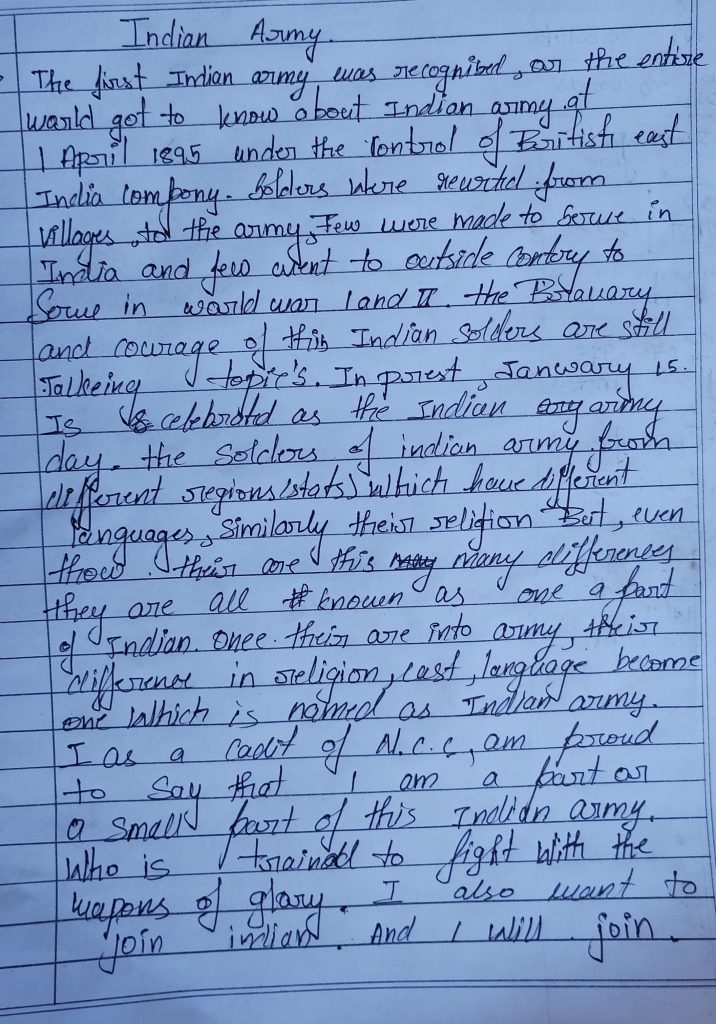 Indian Army.
The first Indian army was recognibed, or the entire
warld got to know about Indian army at
1 April 1895 under the Control of British east
India Compony. Solders were recurited from
villages, to the army, Few were made to Serve in
India and few went to outside Contory to
Serve in world war I and II. the Bravary
and courage of this Indian Solders are still
Talkeing topic's. In prest, Janwary 15.
Is celebratd as the Indian army
day. the Solders of indian army from
different regions (stats) which have different
languages, Similarly their religion But, even
thow their are this many differences
they are all knowen as one a part
of Indian. Once their are into army, their
difference in religion, cast, language become
one which is named as Indian army.
I as a Cadit of N.C.C, am proud
to Say that I am a part or
a Small part of this Indian army.
Who is trained to fight with the
weapons of glary. I also want to
join indian. And I will join.